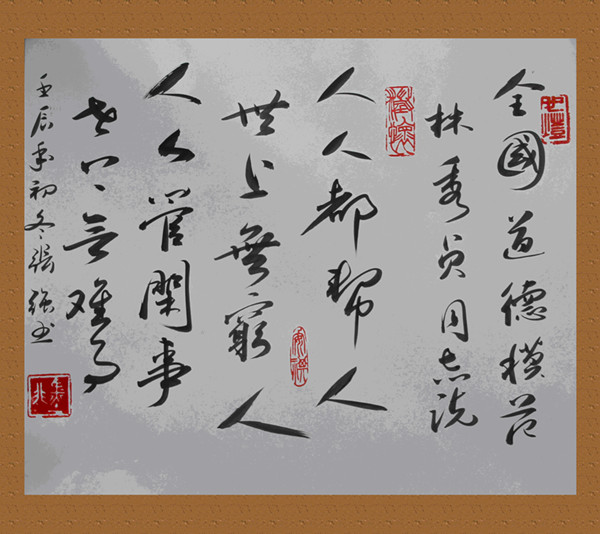 全國道德模范
林秀贞同志说
人人都幫人
世上無窮人
人人管閑事
世上无难事
壬辰年初冬張强书